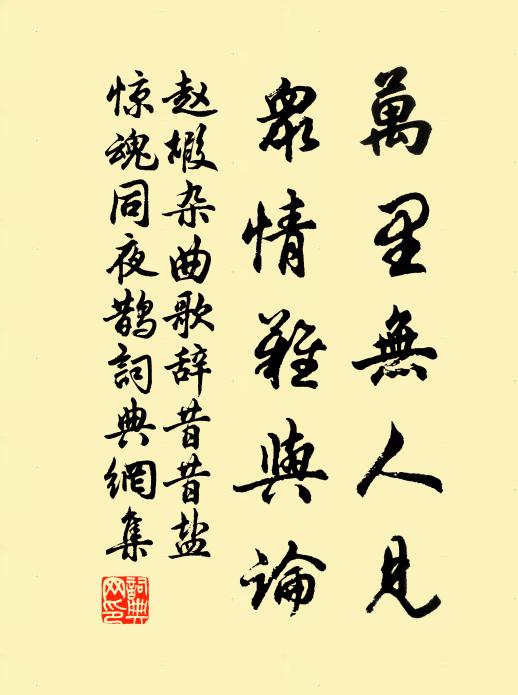 萬里無人見
衆情難與論
赵嘏杂曲歌辞昔昔盐
惊魂同夜鹊詞典網集
詞典网印